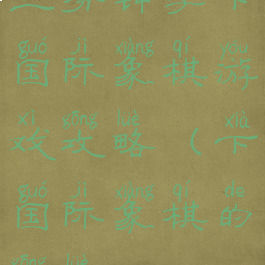 guó jì xiàng qí yóu
国际象棋游
xì gōng lüè xià
戏攻略（下
guó jì xiàng qí de
国际象棋的
gōng lüè